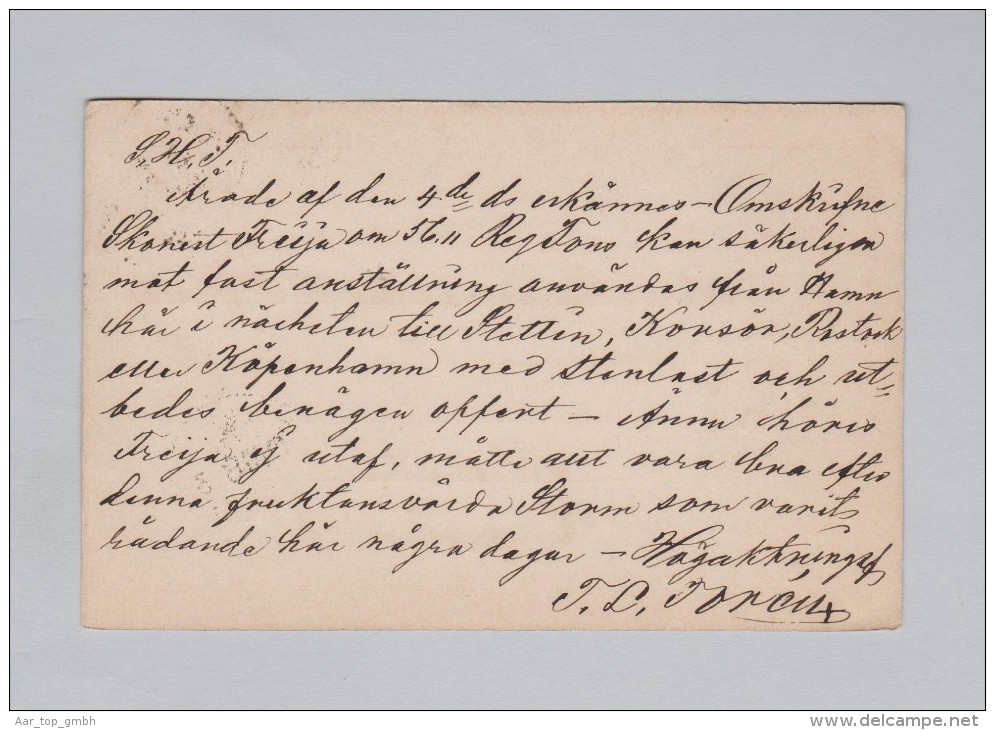 S. H. T.
Ärade af den 4de ds erkännes - Omskrifne
Skonert Freija om 56.11 Reg Tons kan säkerligen
mot fast anställning användas från Hamn
här i närheten till Stettin, Korsör, Rostock
eller Köpenhamn med stenlast och ut-
bedes benägen offert - Ännu höres
Freija ej utaf, måtte allt vara bra efter
denna fruktansvärda Storm som varit
rådande här några dagar - Högaktningsf
T. L.
Aar_top_gmbh
www.delcampe.net